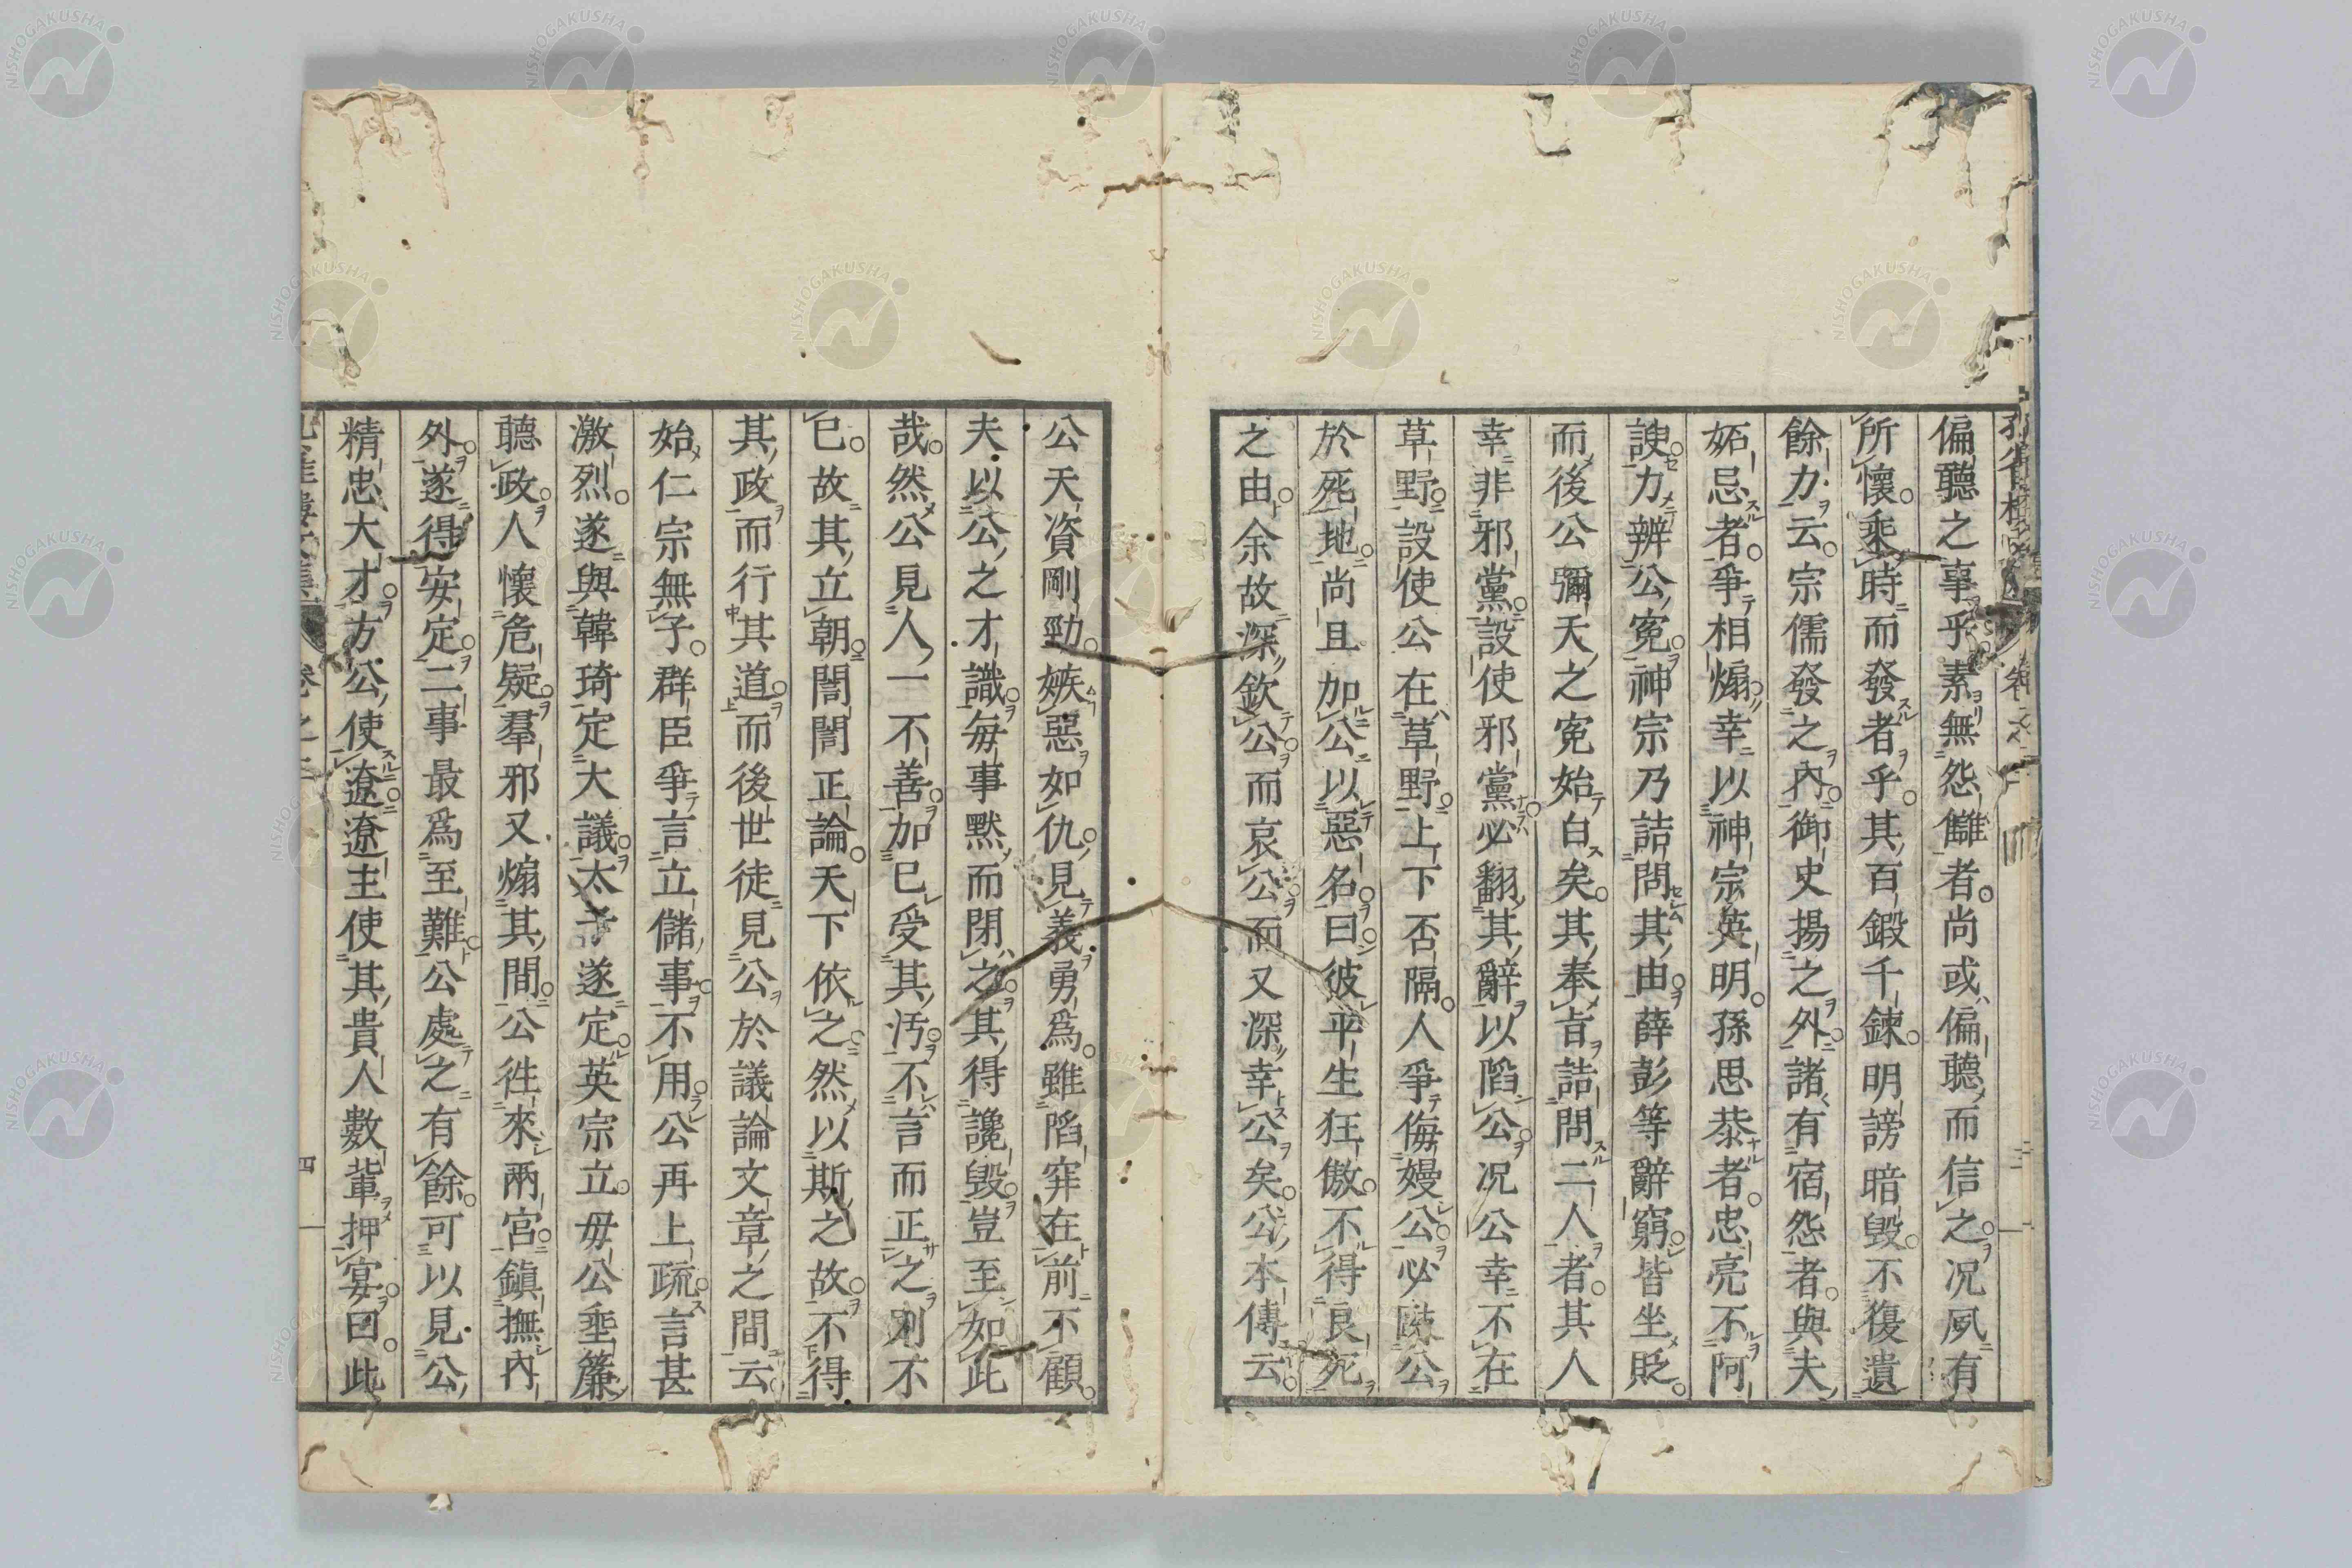 偏聽之事乎素無怨讎者尚或偏聽而信之況風有
所懷乘時而發者乎其百鍛千鍊明謗暗毀不復遺
餘力云宗儒發之內御史揚之外諸有宿怨者與夫
妬忌者爭相煽幸以神宗英明孫思恭者忠亮不阿
諛力辨公寃神宗乃詰問其由薛彭等辭窮皆坐貶
而後公彌天之寃始白矣其奉旨詰問二人者其人
幸非邪黨設使邪黨必翻其辭以陷公況公幸不在
草野設使公在草野上下否隔人爭侮嫚公必陵公
於死地尚且加公以惡名曰彼平生狂傲不得良死
之由余故深欽公而哀公而又深幸公矣公本傳云
公天資剛勁嫉惡如仇見義勇爲雖陷穽在前不顧
夫以公之才識每事默而閉之其得讒毀豈至如此
哉然公見人一不善加已受其汚不言而正之則不
已故其立朝誾誾正論天下依之然以斯之故不得
其政而行其道而後世徒見公於議論文章之間云
始仁宗無子群臣爭言立儲事不用公再上疏言甚
激烈遂與韓琦定大議太子遂定英宗立毋公垂簾
聽政人懷危疑羣邪又煽其間公徃來兩宮鎮撫內
外遂得安定二事最爲至難公處之有餘可以見公
精忠大才方公使遼遼主使其貴人數軰押宴曰此
四